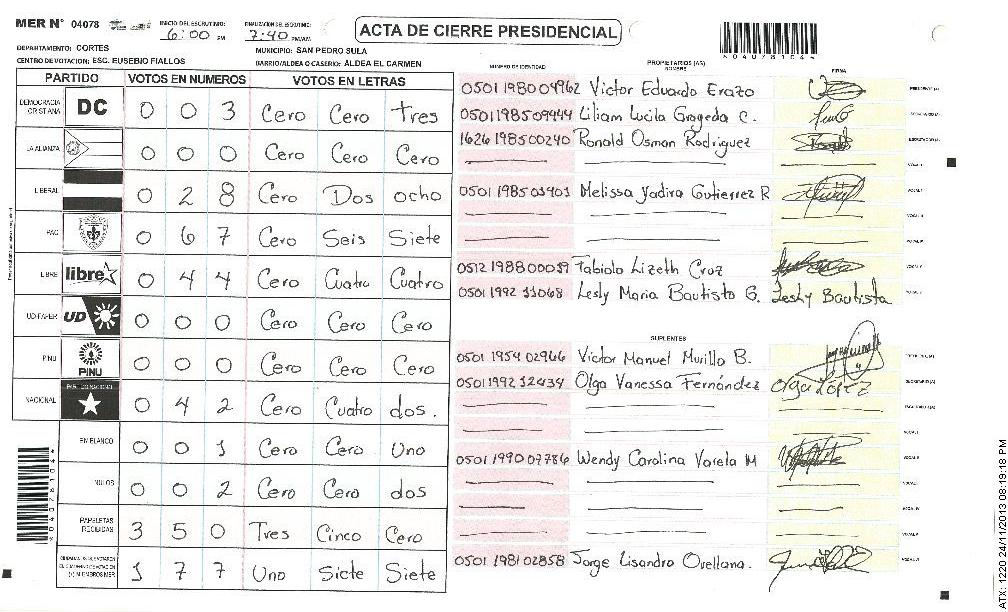 MER N° 04078
INICIO DEL ESCRUTINIO: 6:00 PM
FINALIZACION DEL ESCRUTINIO: 7:40 PM/AM
ACTA DE CIERRE PRESIDENCIAL
*04078104*
DEPARTAMENTO: CORTES
MUNICIPIO: SAN PEDRO SULA
CENTRO DE VOTACION: ESC. EUSEBIO FIALLOS
BARRIO/ALDEA O CASERIO: ALDEA EL CARMEN
PARTIDO VOTOS EN NUMEROS VOTOS EN LETRAS
DEMOCRACIA CRISTIANA DC 0 0 3 Cero Cero tres
LA ALIANZA 0 0 0 Cero Cero Cero
LIBERAL 0 2 8 Cero Dos ocho
PAC 0 6 7 Cero Seis Siete
LIBRE libre 0 4 4 Cero Cuatro Cuatro
UD-FAPER UD 0 0 0 Cero Cero Cero
PINU PINU 0 0 0 Cero Cero Cero
NACIONAL PARTIDO NACIONAL 0 4 2 Cero Cuatro dos.
EN BLANCO 0 0 1 Cero Cero Uno
NULOS 0 0 2 Cero Cero dos
PAPELETAS RECIBIDAS 3 5 0 Tres Cinco Cero
1 7 7 Uno Siete Siete
NUMERO DE IDENTIDAD PROPIETARIOS (AS) NOMBRE FIRMA
0501 1980 04962 Victor Eduardo Erazo PRESIDENTE (A)
0501 1985 09444 Liliam Lucila Grageda C. SECRETARIO (A)
1626 1985 00240 Ronald Osman Rodriguez ESCRUTADOR (A)
VOCAL I
0501 1985 03403 Melissa Yadira Gutierrez R
0512 1988 00059 Fabiola Lizeth Cruz
0501 1992 11068 Lesly Maria Bautista G. Lesly Bautista
SUPLENTES
0501 1954 02966 Victor Manuel Murillo B. PRESIDENTE (A)
0501 1992 12434 Olga Vanessa Fernández Olga López SECRETARIO (A)
ESCRUTADOR (A)
VOCAL I
0501 1990 07786 Wendy Carolina Varela M
0501 1981 02858 Jorge Lisandro Orellana.
*04078104*
ATX: 1220 24/11/2013 08:19:18 PM